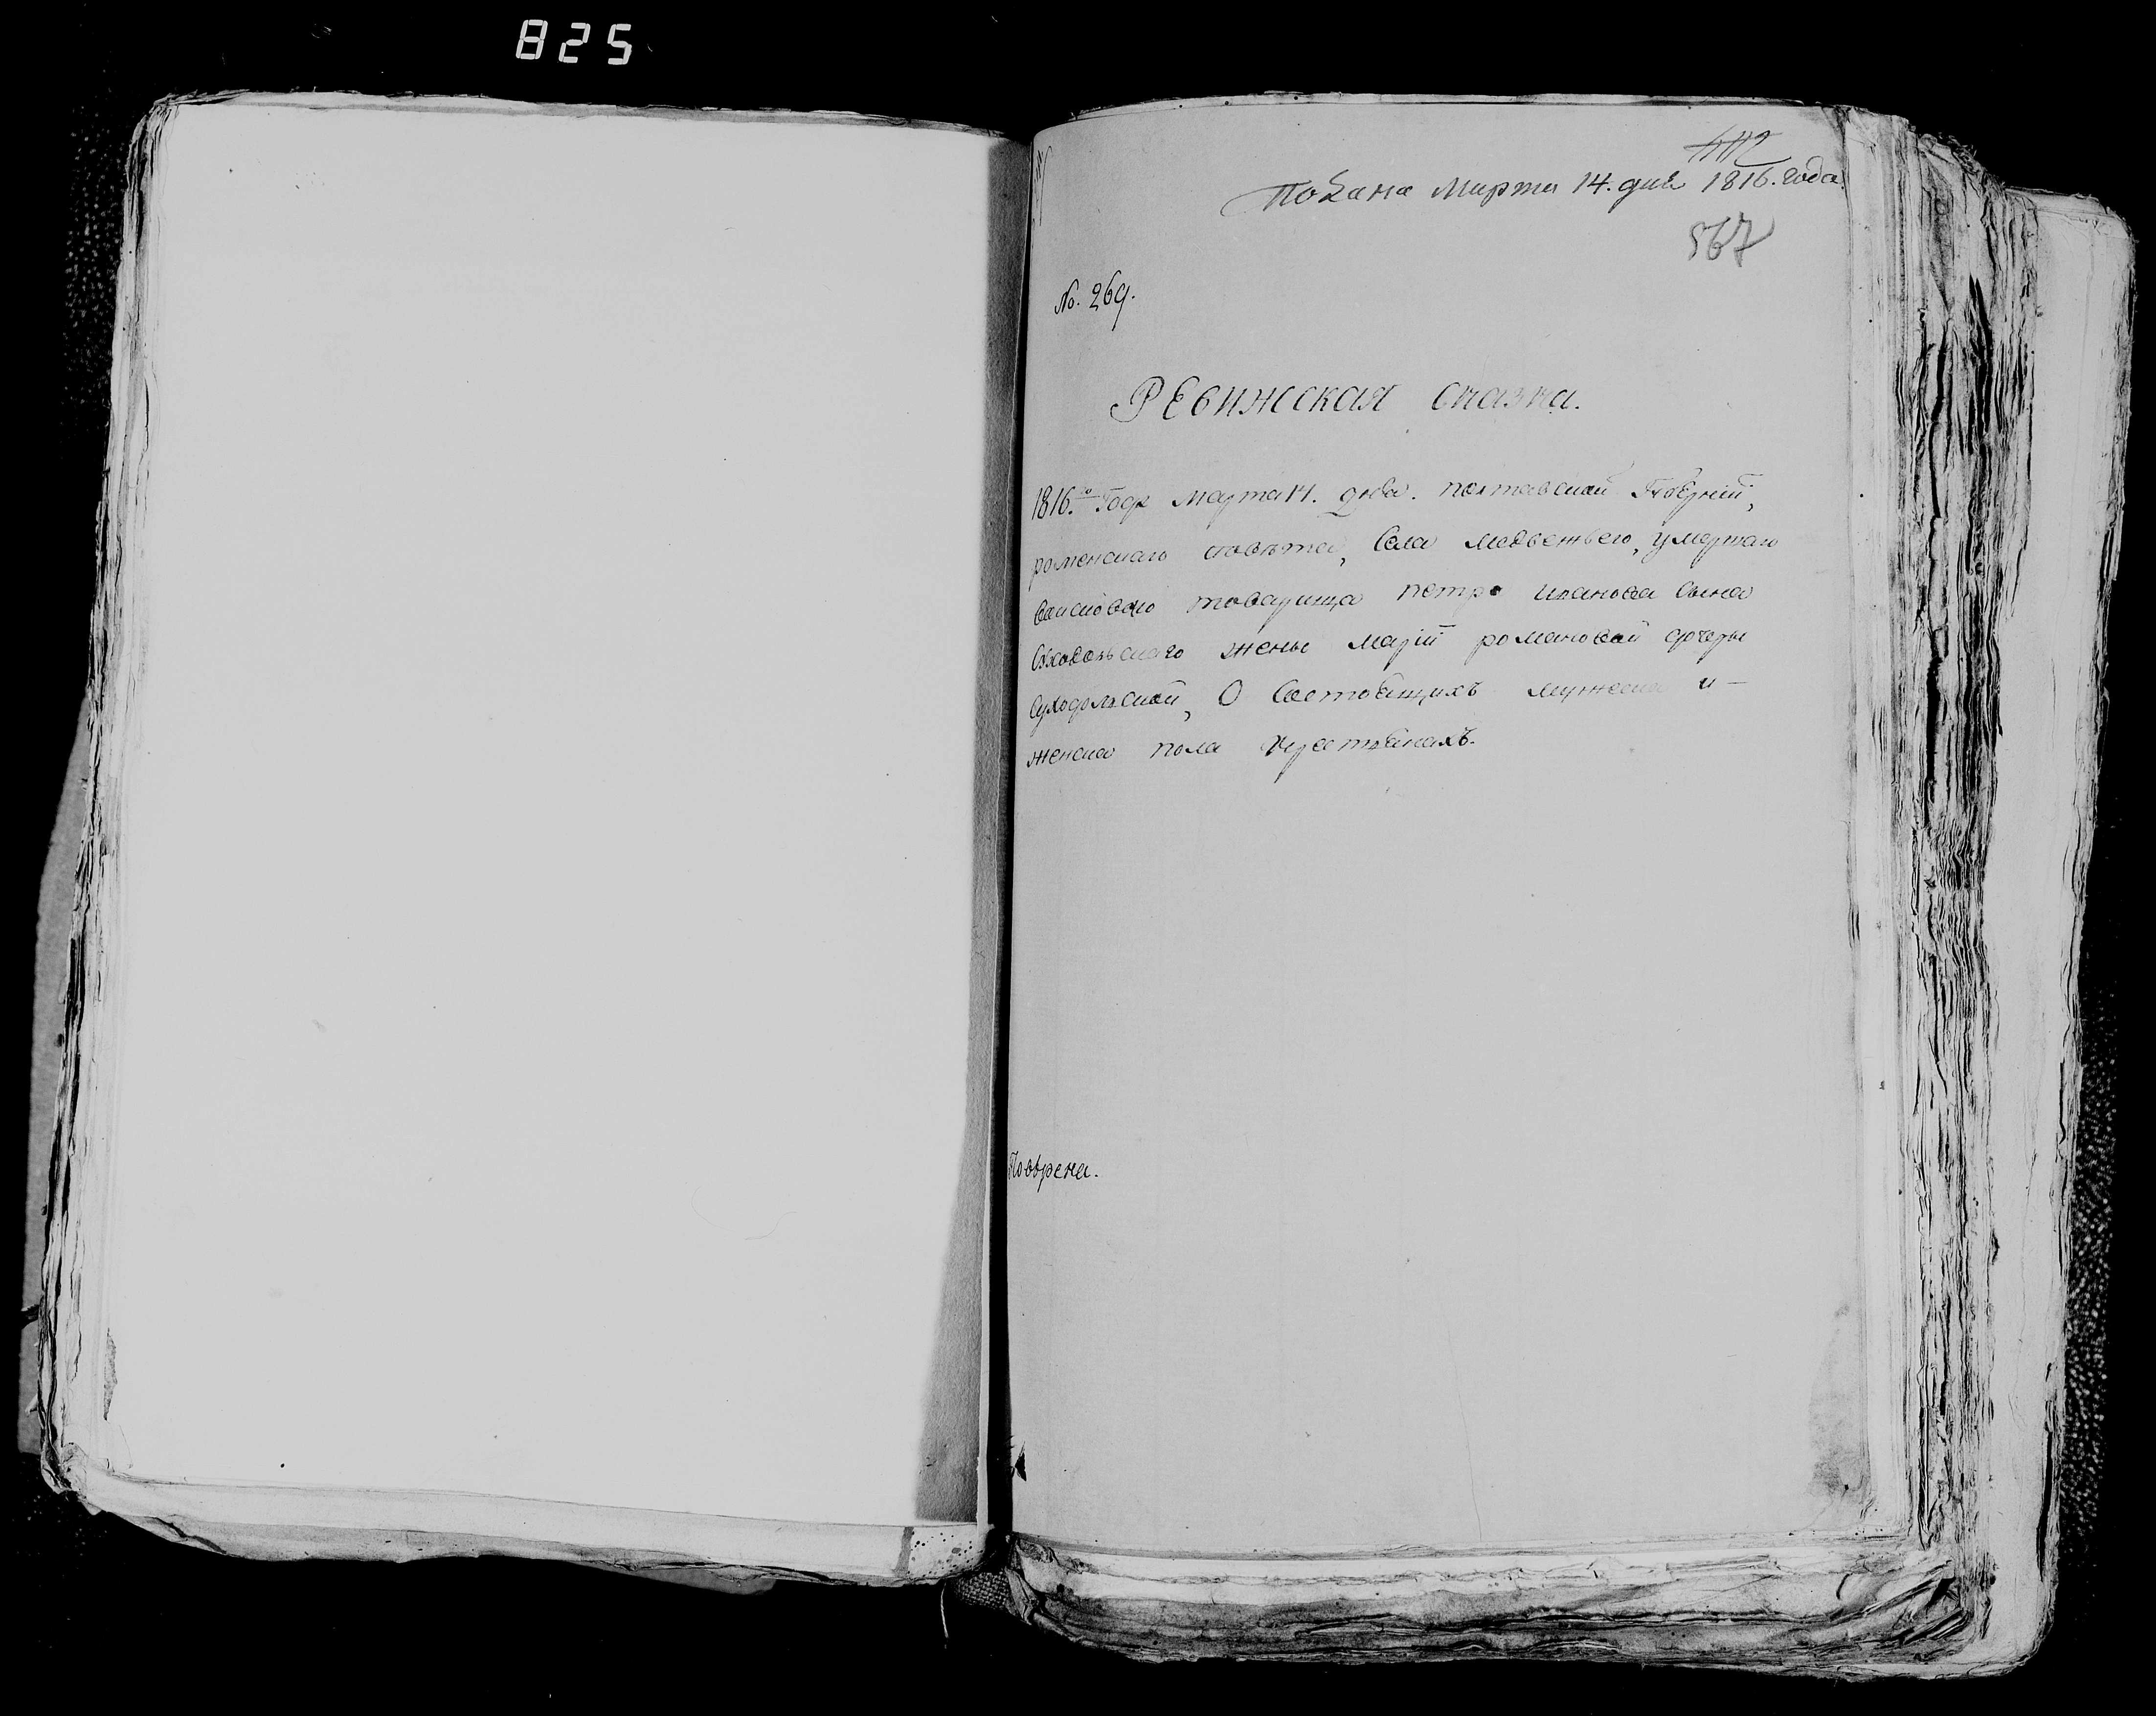 825
442
Подана Марта 14. дня 1816. года.
567
No. 269.
Ревижская сказка.
1816.го Года Марта 14. дня. полтавской Губернїи,
роменскаго повѣта, села медвежьего, умершаго
войсковаго товарища петра иванова сына
Суходольскаго жены марїи романовой дочеры
суходольской, О состоящихъ мужеска и –
женска пола крестьянахъ.
Повѣрена.